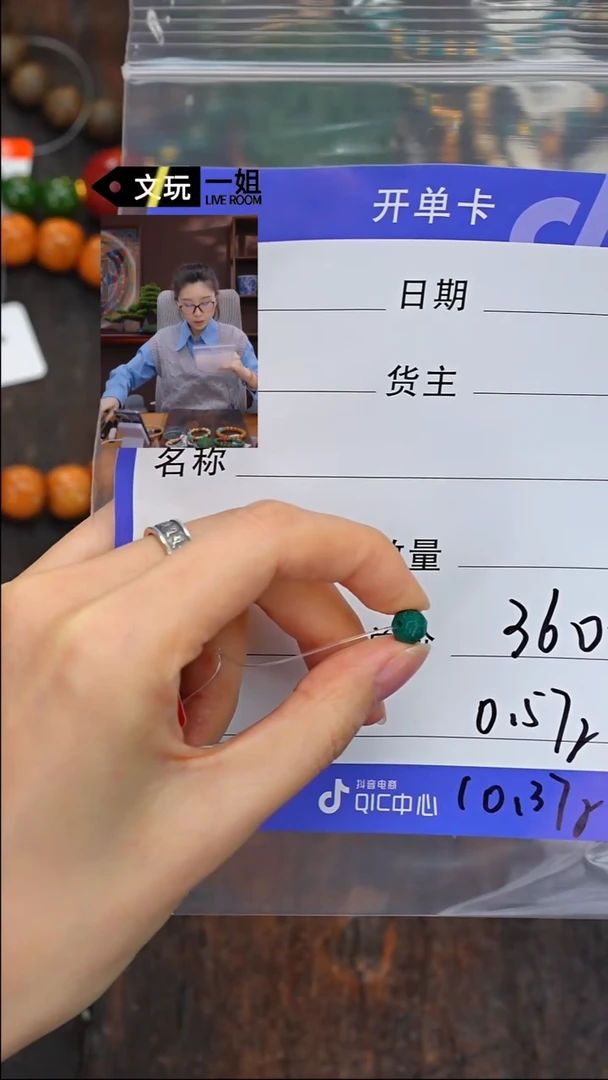 文玩 一姐
LIVE ROOM
开单卡
日期
货主
名称
量
360
0.57g
抖音电商
QIC中心
(0.37g